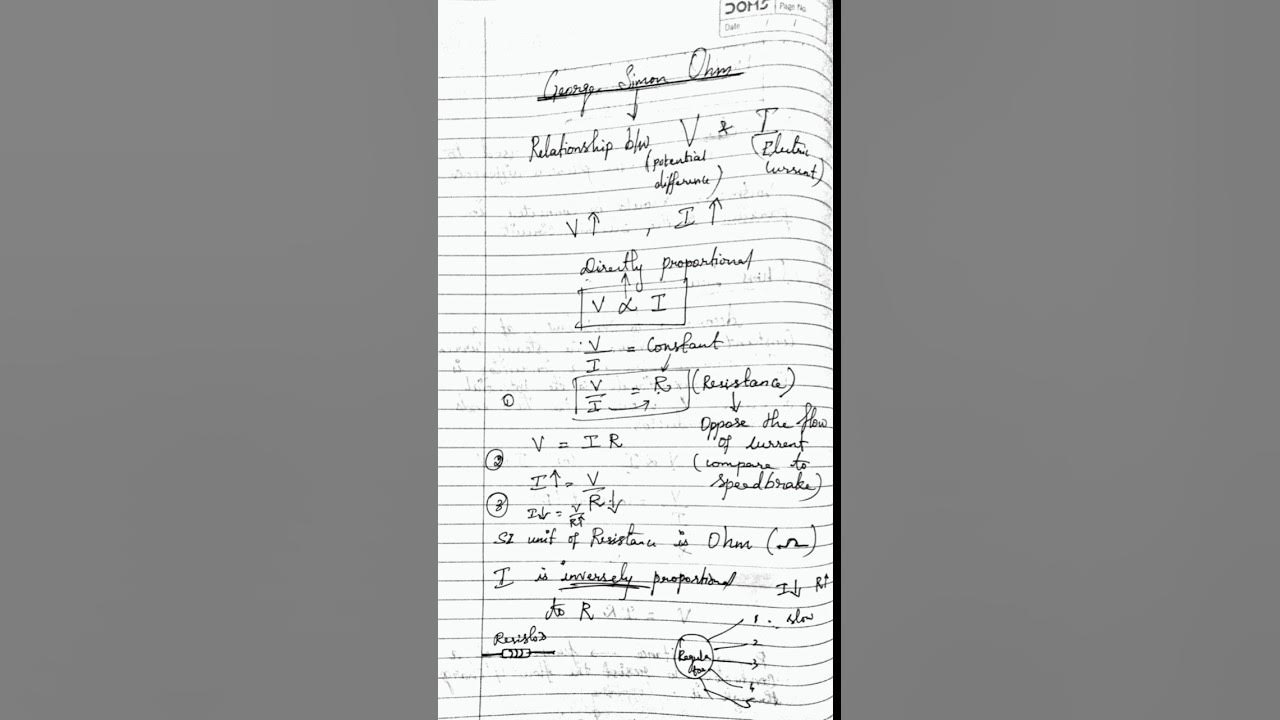 DOMS Page No.
Date / /
George Simon Ohm
Relationship b/w V & I
(potential difference) (Electric current)
V↑ , I↑
Directly proportional
V ∝ I
V/I = Constant
① V/I = R (Resistance)
Oppose the flow of current (compare to speedbrake)
V = I R
②
I↑ = V/R↓
③ I↓ = V/R↑
SI unit of Resistance is Ohm (Ω)
I is inversely proportional I↓ R↑
to R
Resistor
Regulator
1. slow
2
3
4
5